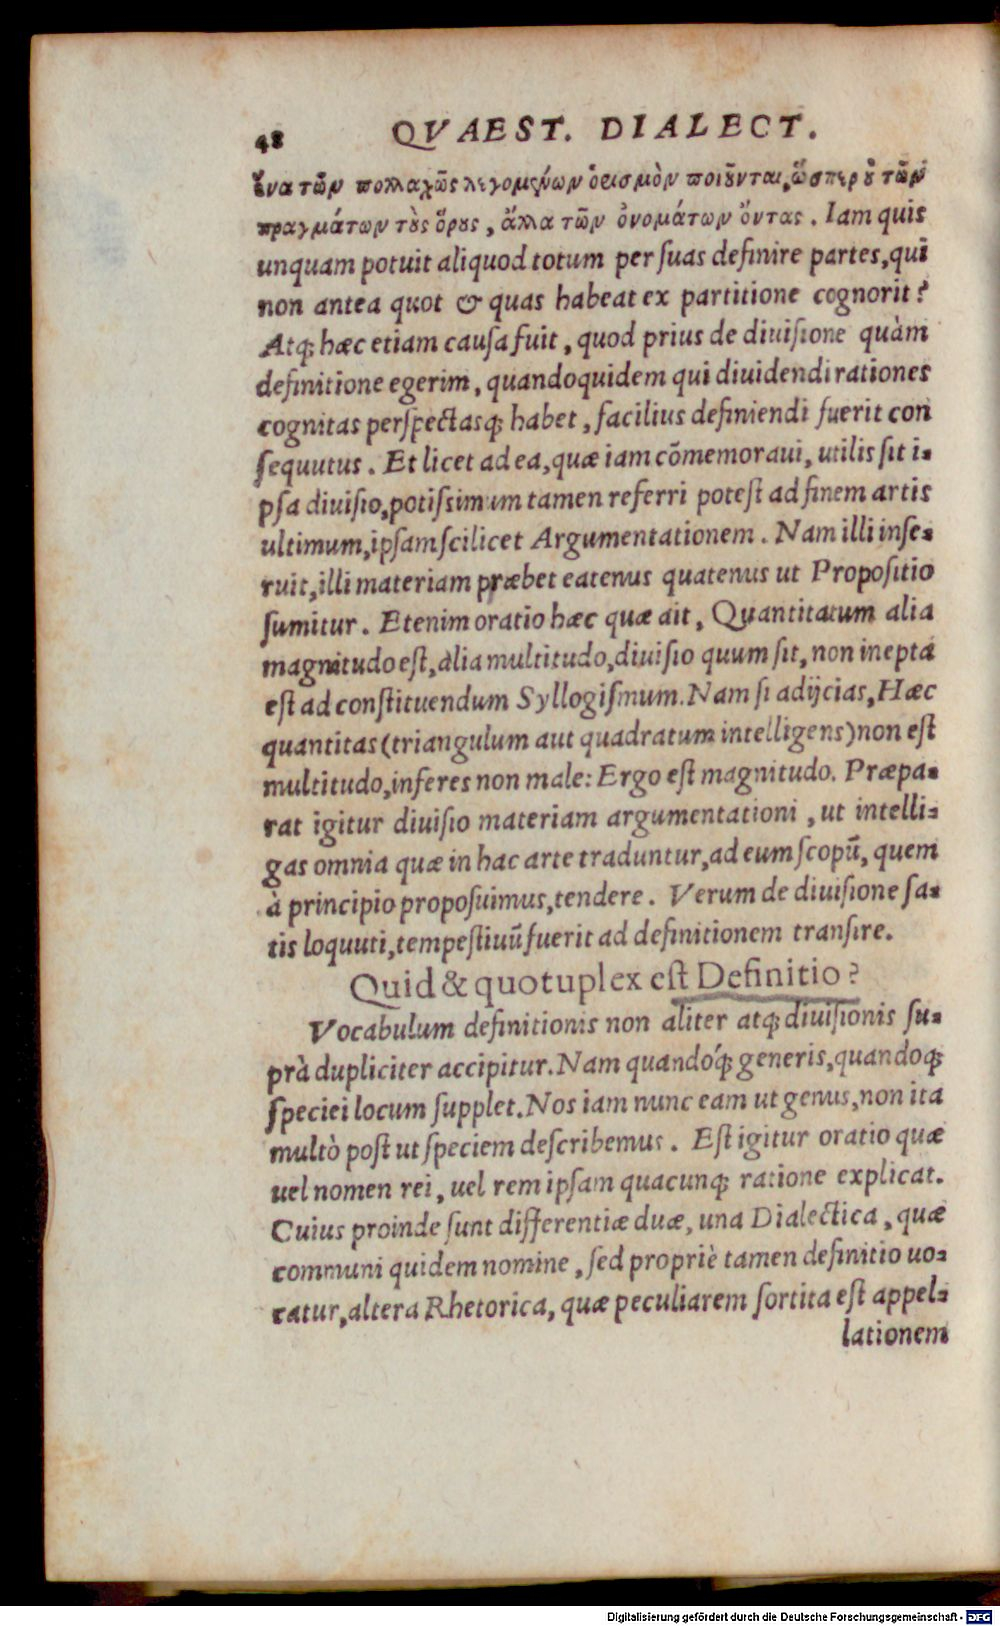 48 QVAEST. DIALECT.
ἕνα τῶν πολλαχῶς λεγομένων ὁρισμὸν ποιοῦνται, ὥσπερ οὐ τῶν
πραγμάτων τοὺς ὅρους, ἄλλα τῶν ὀνομάτων ὄντας. Iam quis
unquam potuit aliquod totum per ſuas definire partes, qui
non antea quot & quas habeat ex partitione cognorit?
Atq; hæc etiam cauſa fuit, quod prius de diuiſione quàm
definitione egerim, quandoquidem qui diuidendi rationes
cognitas perſpectasq; habet, facilius definiendi fuerit con
ſequutus. Et licet ad ea, quæ iam cõmemoraui, utilis ſit i-
pſa diuiſio, potiſsimum tamen referri poteſt ad finem artis
ultimum, ipſam ſcilicet Argumentationem. Nam illi inſe-
ruit, illi materiam præbet eatenus quatenus ut Propoſitio
ſumitur. Etenim oratio hæc quæ ait, Quantitatum alia
magnitudo eſt, alia multitudo, diuiſio quum ſit, non inepta
eſt ad conſtituendum Syllogiſmum. Nam ſi adijcias, Hæc
quantitas (triangulum aut quadratum intelligens) non eſt
multitudo, inferes non male: Ergo eſt magnitudo. Præpa-
rat igitur diuiſio materiam argumentationi, ut intelli-
gas omnia quæ in hac arte traduntur, ad eum ſcopũ, quem
à principio propoſuimus, tendere. Verum de diuiſione ſa-
tis loquuti, tempeſtiuũ fuerit ad definitionem tranſire.
Quid & quotuplex eſt Definitio?
Vocabulum definitionis non aliter atq; diuiſionis ſu-
prà dupliciter accipitur. Nam quandoq́; generis, quandoq;
ſpeciei locum ſupplet. Nos iam nunc eam ut genus, non ita
multò poſt ut ſpeciem deſcribemus. Eſt igitur oratio quæ
uel nomen rei, uel rem ipſam quacunq; ratione explicat.
Cuius proinde ſunt differentiæ duæ, una Dialectica, quæ
communi quidem nomine, ſed propriè tamen definitio uo-
catur, altera Rhetorica, quæ peculiarem ſortita eſt appel-
lationem
Digitalisierung gefördert durch die Deutsche Forschungsgemeinschaft - DFG